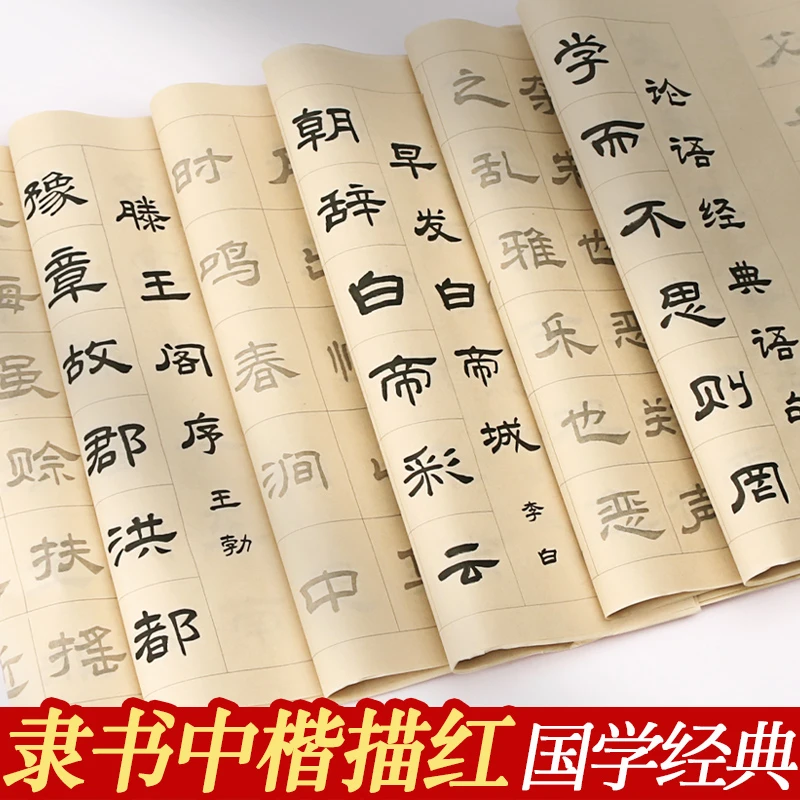 论语经典语句
学而不思则罔
夺朱也恶郑声
之乱雅乐也恶
早发白帝城
李白
朝辞白帝彩云
时鸣春涧中
滕王阁序
王勃
豫章故郡洪都
海虽赊扶摇
隶书中楷描红
国学经典